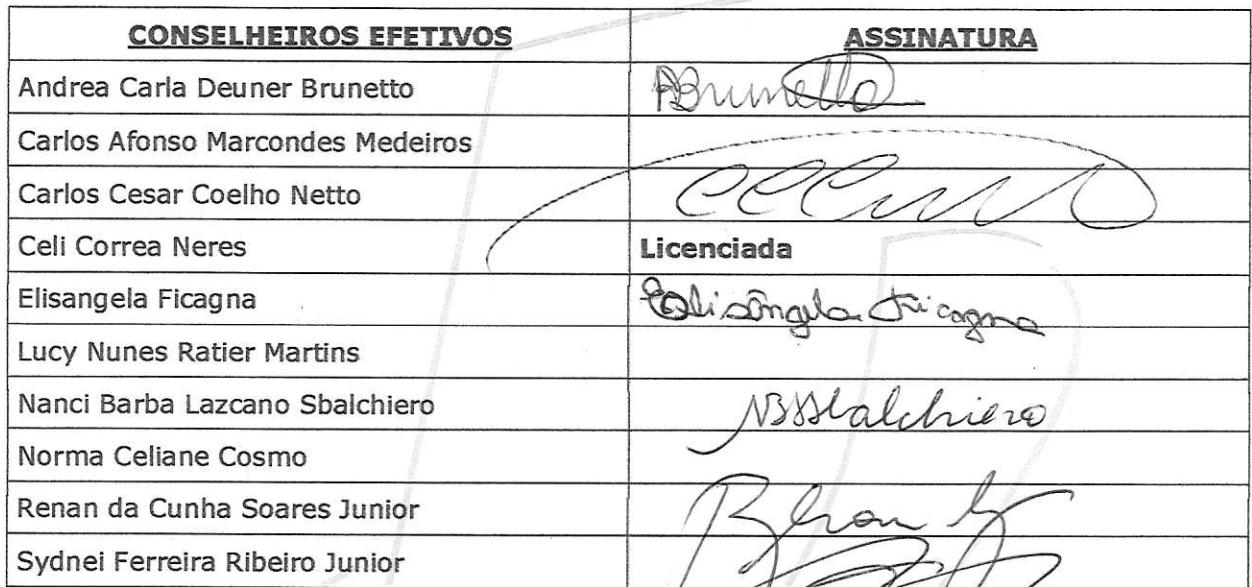 CONSELHEIROS EFETIVOS ASSINATURA
Andrea Carla Deuner Brunetto ABrunetto
Carlos Afonso Marcondes Medeiros
Carlos Cesar Coelho Netto
Celi Correa Neres Licenciada
Elisangela Ficagna Elisângela Ficagna
Lucy Nunes Ratier Martins
Nanci Barba Lazcano Sbalchiero NBSbalchiero
Norma Celiane Cosmo
Renan da Cunha Soares Junior
Sydnei Ferreira Ribeiro Junior